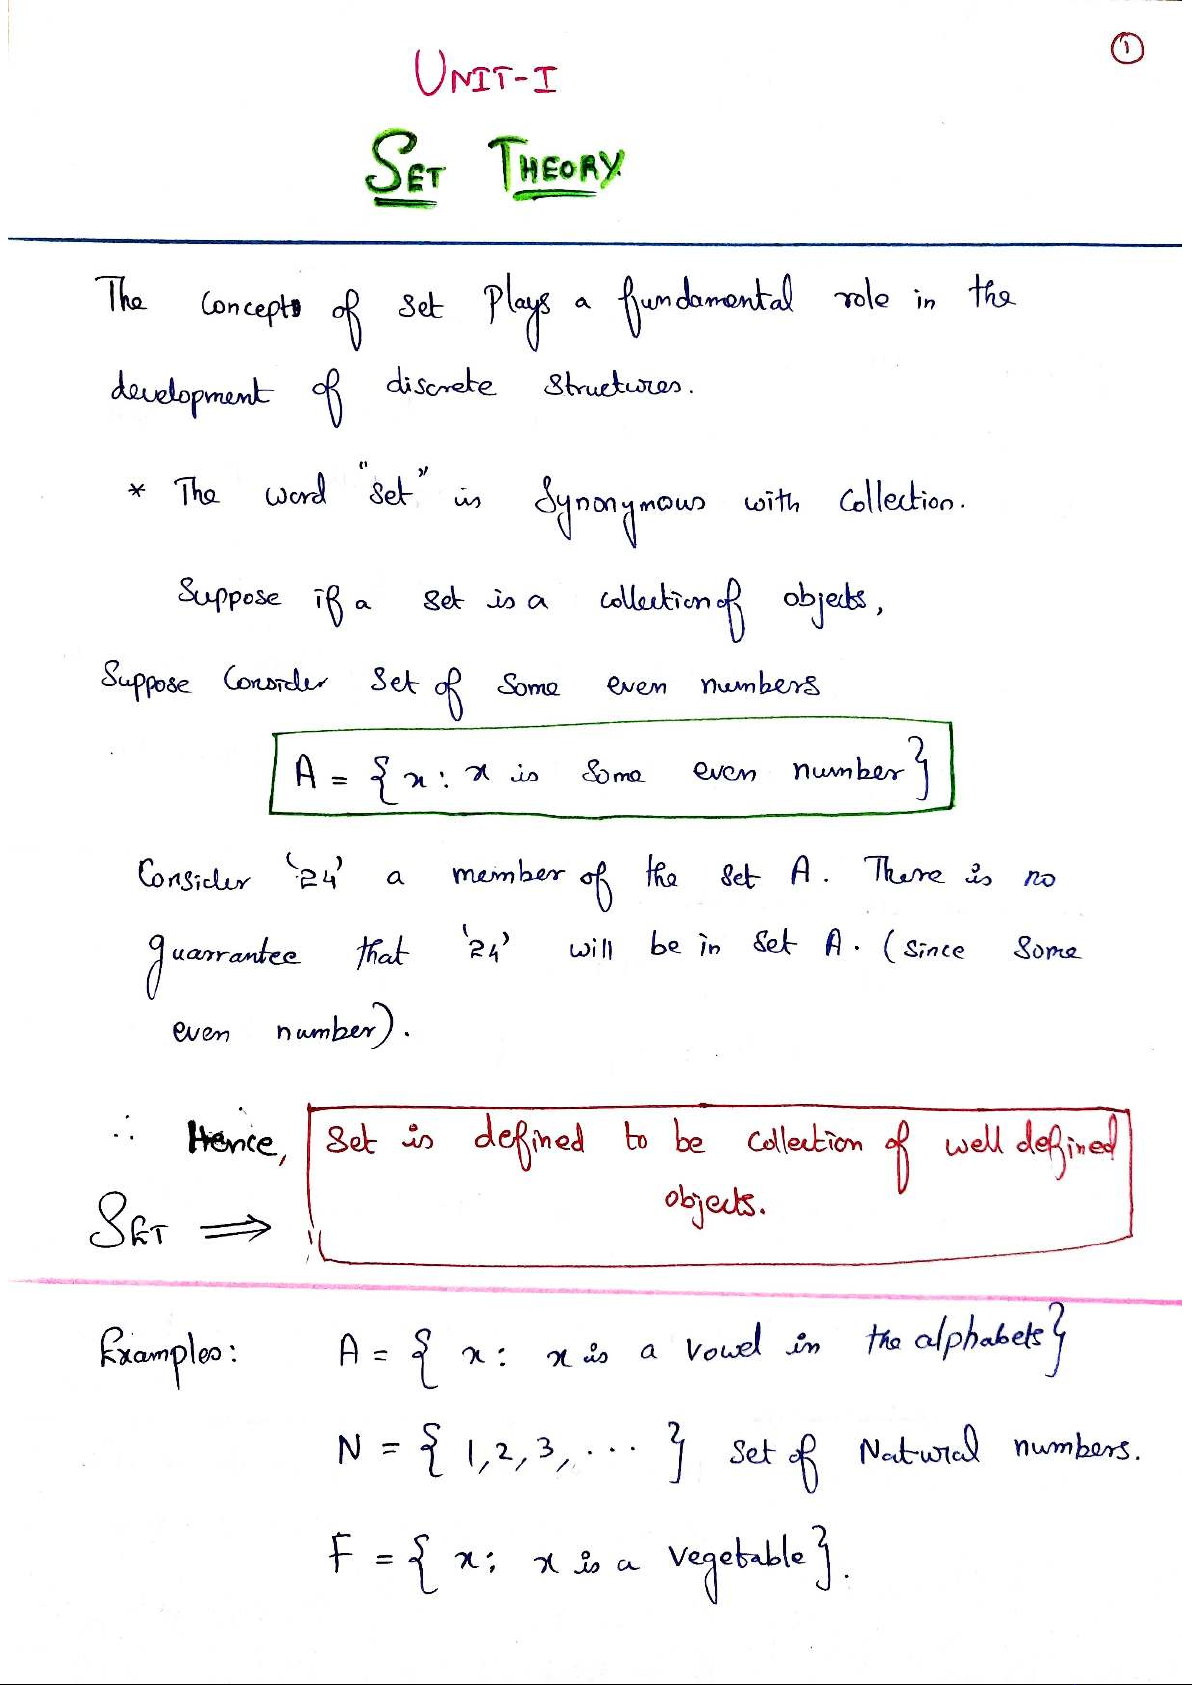 1
UNIT-I
SET THEORY
The concepts of set plays a fundamental role in the
development of discrete structures.
* The word "set" is Synonymous with collection.
Suppose if a set is a collection of objects,
Suppose Consider Set of Some even numbers
A = { x : x is Some even number}
Consider '24' a member of the set A. There is no
guarrantee that '24' will be in set A. (since Some
even number).
∴ Hence, Set is defined to be collection of well defined
objects.
SET ⟹
Examples: A = { x : x is a vowel in the alphabets}
N = { 1,2,3, ... } set of Natural numbers.
F = { x : x is a vegetable}.